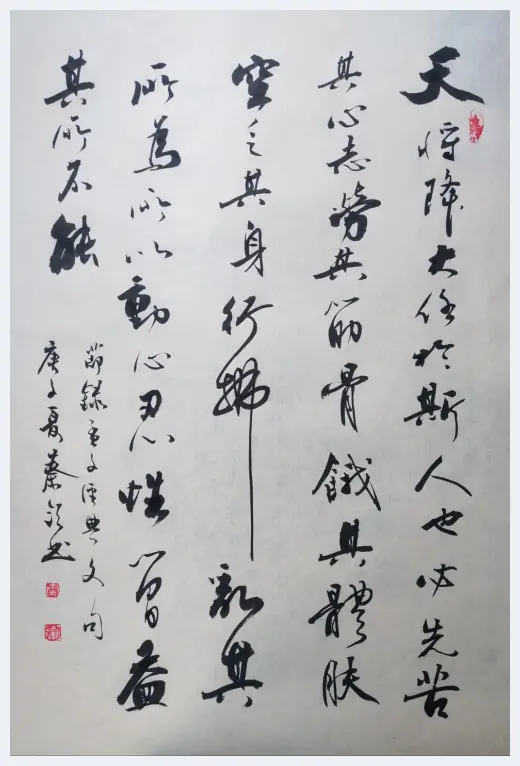 天将降大任於斯人也必先苦
其心志勞其筋骨餓其體肤
空乏其身行拂亂其
所為所以動心忍性曾益
其所不能
節録孟子经典文句
庚子夏秦书